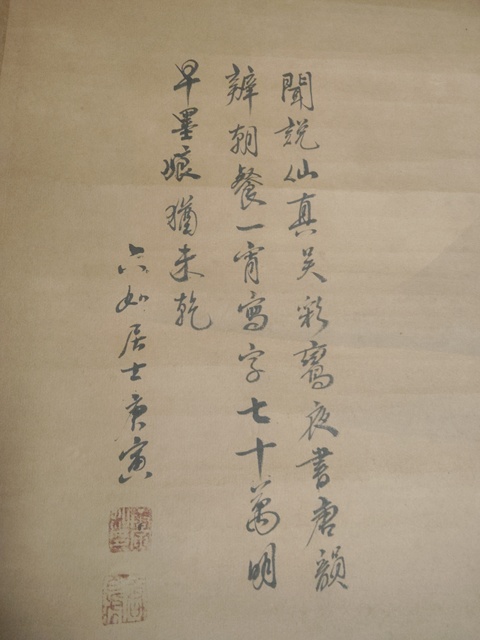 聞說仙真吴彩鸞夜書唐韻
辦朝餐一宵寫字七十萬明
早墨痕猶未乾
六如居士庚寅